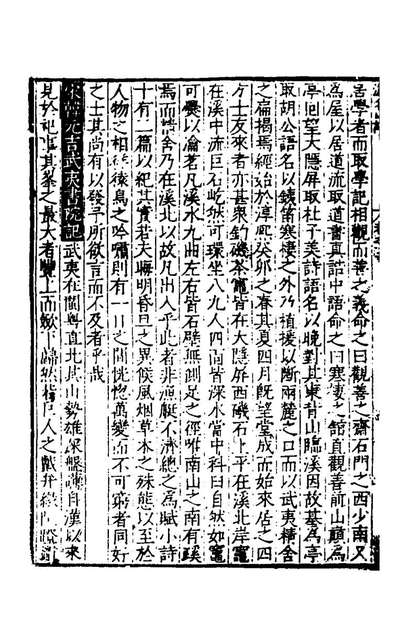 居學者而取學記相觀而善之義命之曰觀善之齋石門之西少南又
為屋以居道流取道書真誥中語命之曰寒棲之館直觀善前山顛為
亭回望大隱屏取杜子美詩語名以晚對其東背山臨溪因故基為亭
取胡公語名以鐵笛寒棲之外乃植援以斷兩麓之口而以武夷精舍
之扁揭焉經始於淳熙癸卯之春其夏四月既望堂成而始來居之四
方士友來者亦甚眾釣磯茶竈皆在大隱屏西磯石上平在溪北岸竈
在溪中流巨石屹然可環坐八九人四面皆深水當中科臼自然如竈
可爨以瀹茗凡溪水九曲左右皆石壁無側足之徑唯南山之南有蹊
焉而精舍乃在溪北以故凡出入乎此者非漁艇不濟總之為賦小詩
十有二篇以紀其實若夫晦明昏旦之異候風烟草木之殊態以至於
人物之相 猿鳥之吟嘯則有一日之間恍惚萬變而不可窮者同好
之士其尚有以發予所欲言而不及者乎哉
宋韓元吉武夷書院記 武夷在閩粵直北其山勢雄深盤礴自漢以來
見於祀事其峯之最大者豐上而歛下巋然 巨人之戴弁緣